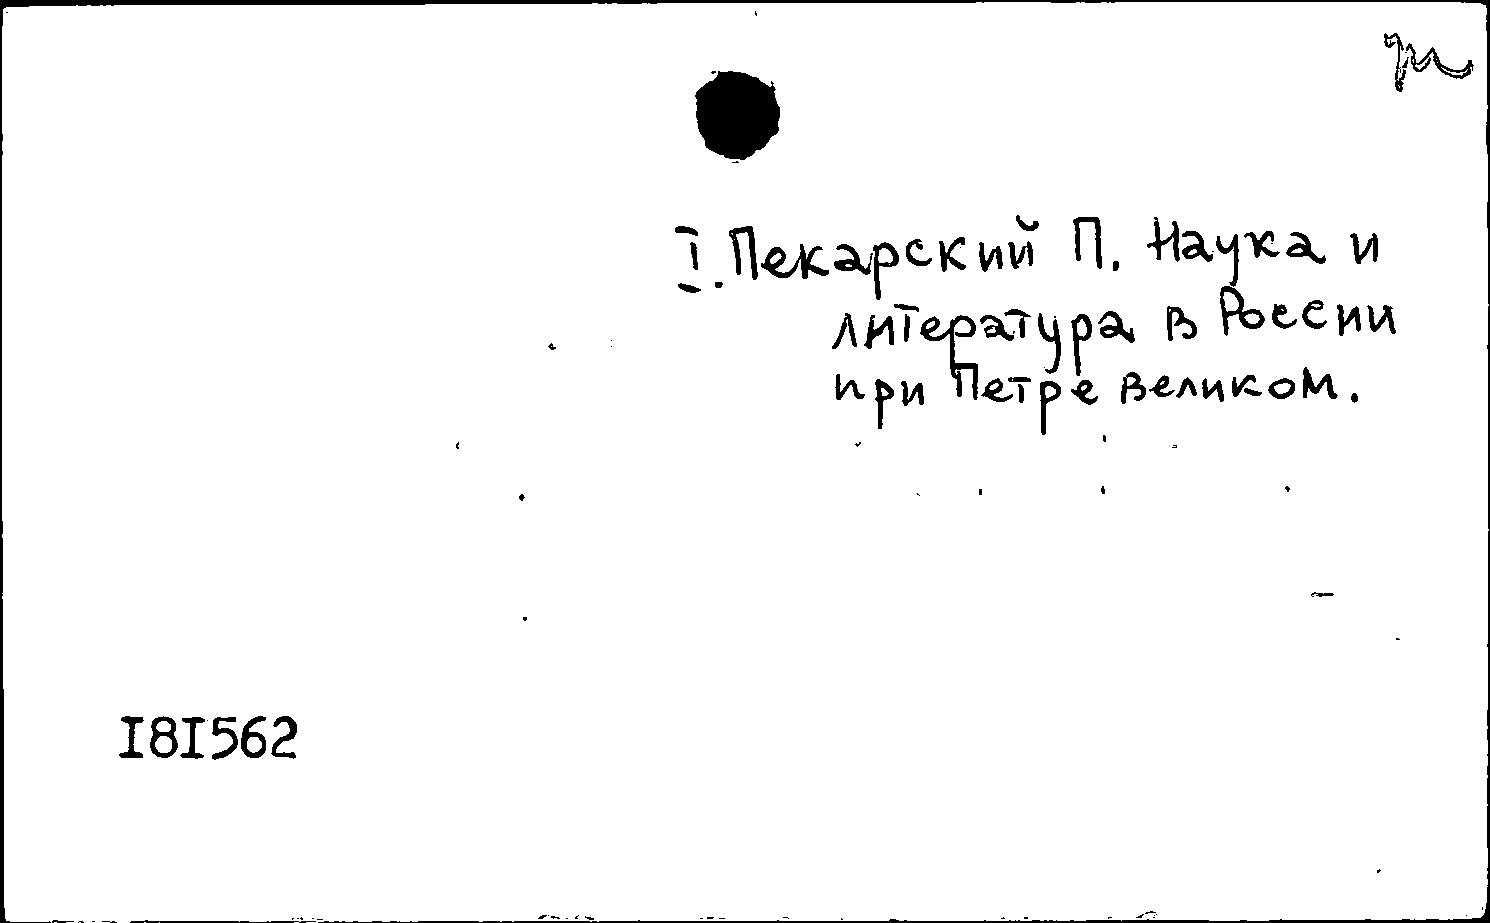 I. Пекарский П. Наука и
литература в России
при Петре Великом.
I8I562